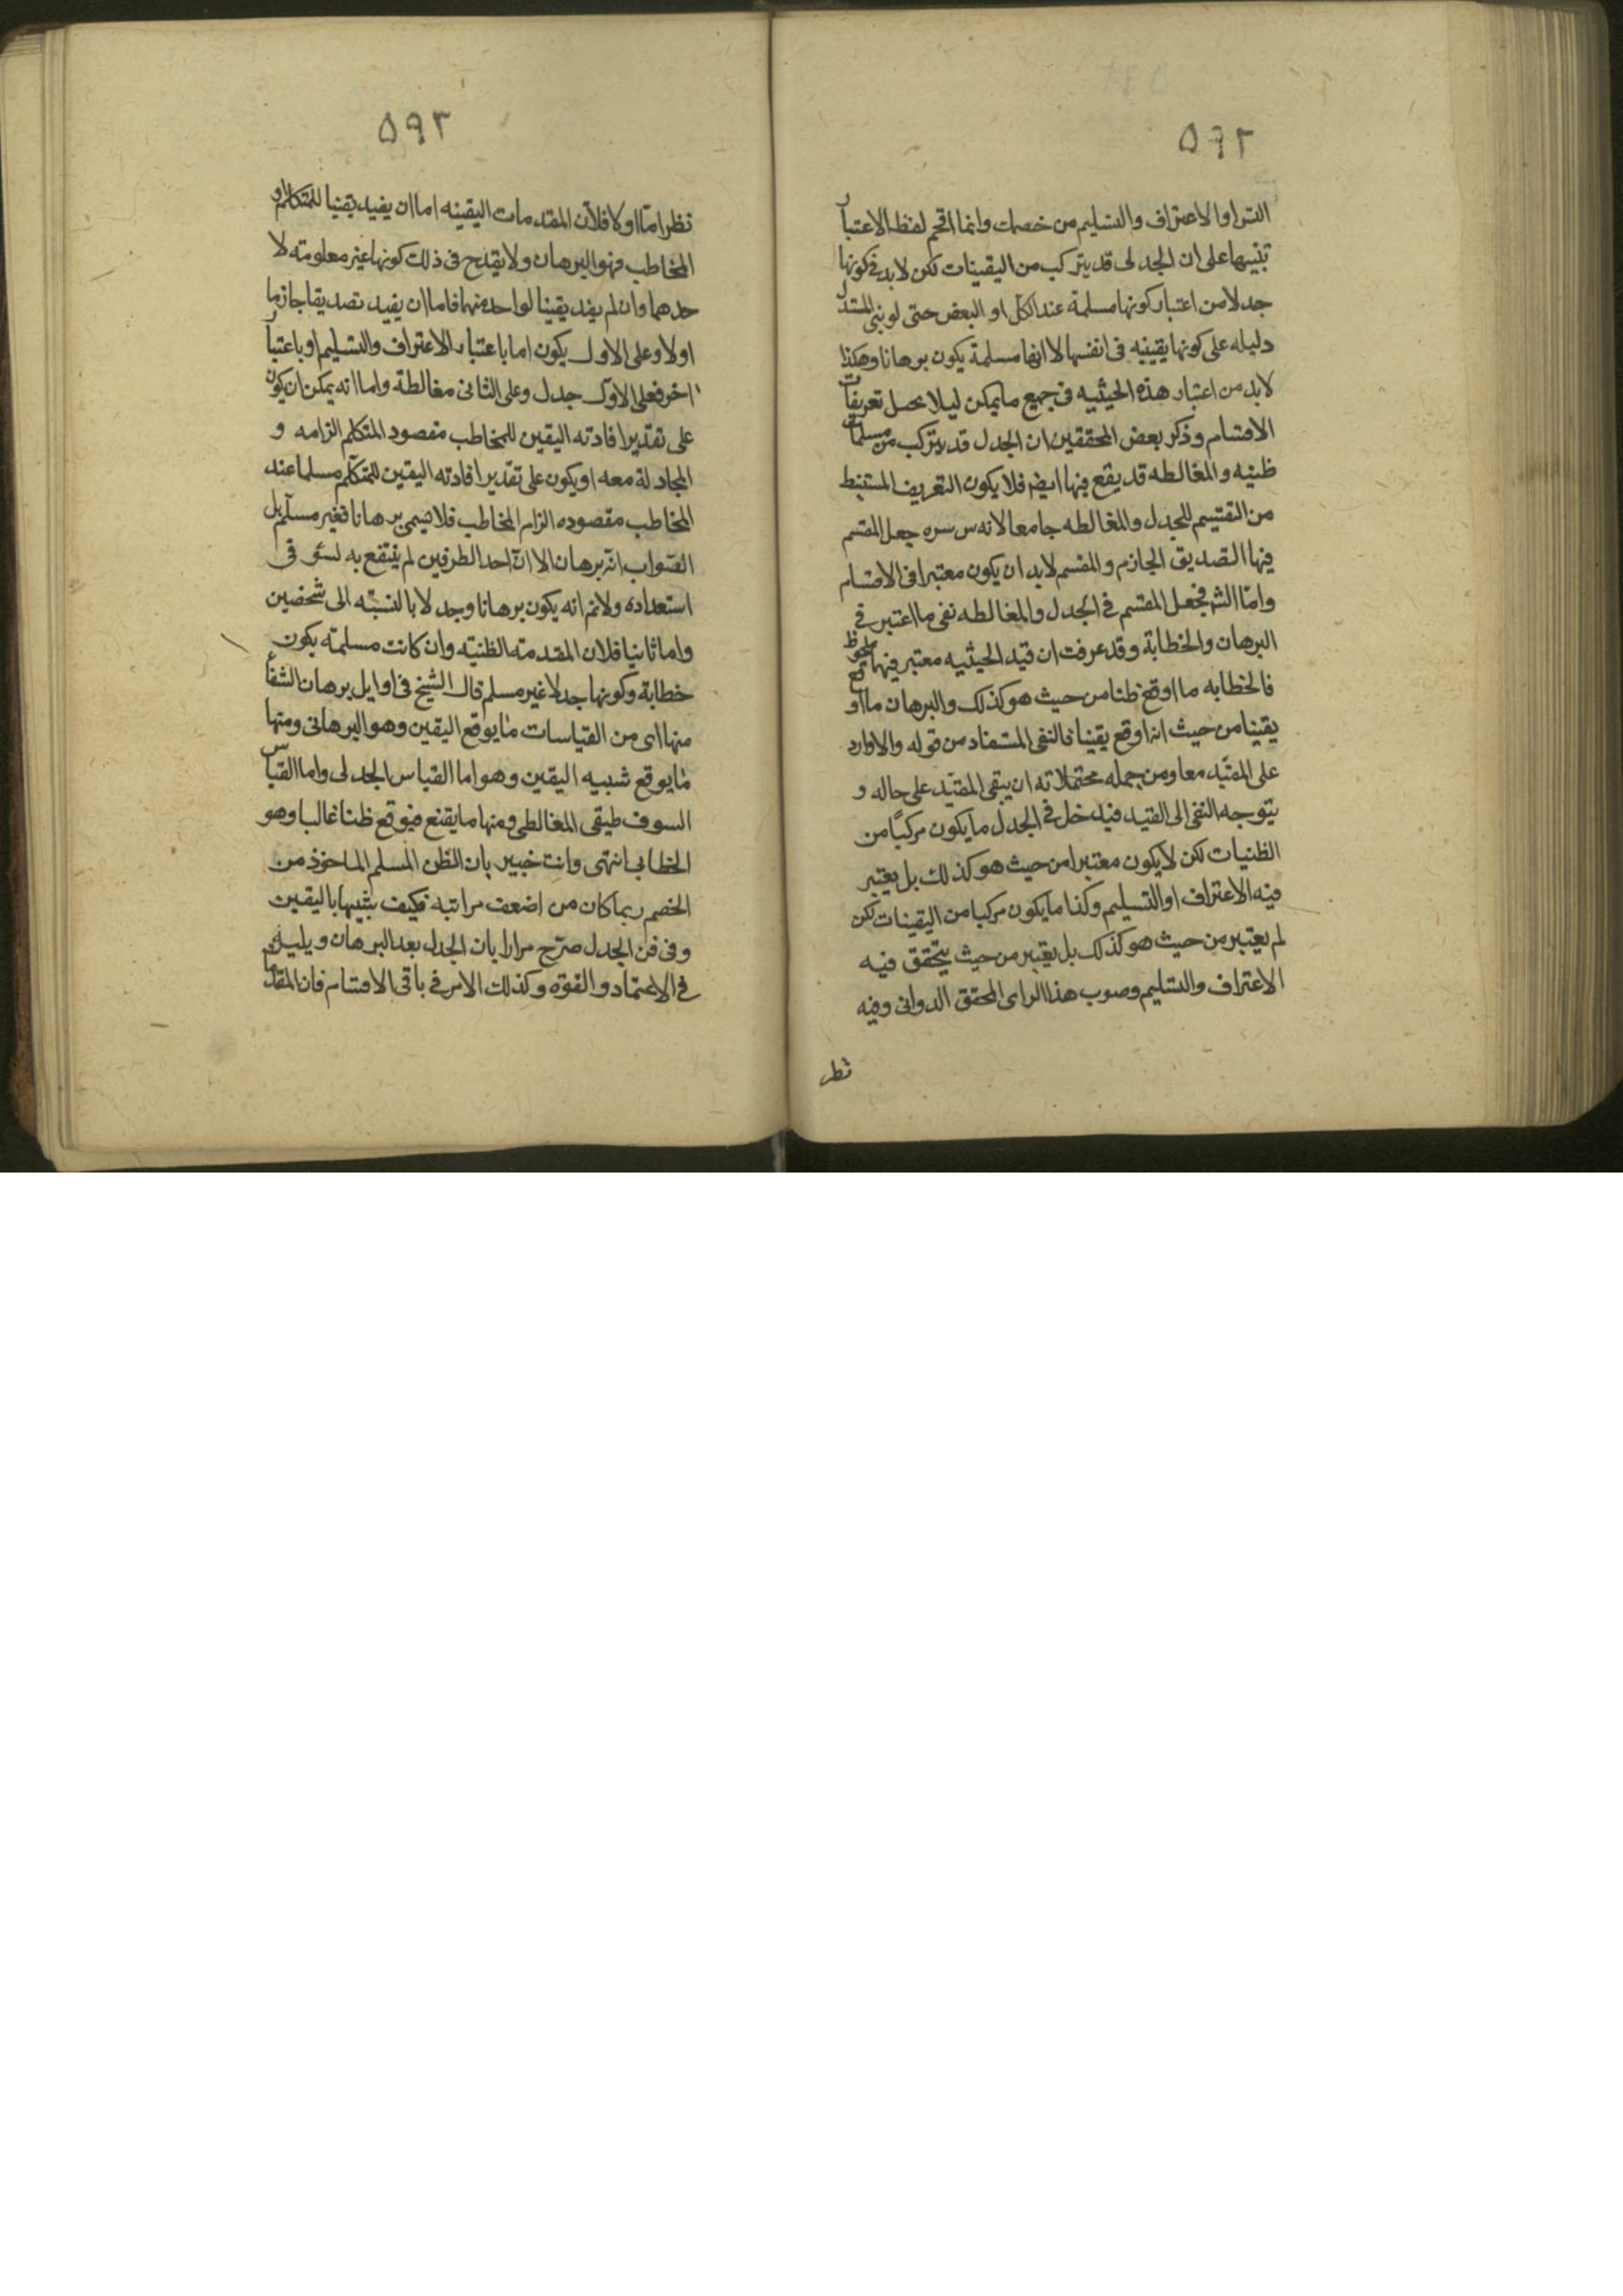 ٥٩٢
الشرا والاعتراف والتسليم من خصمك وانما اقحم لفظ الاعتبار
تنبيها على ان الجدلى قد يتركب من اليقينات لكن لا بد فى كونها
جدلا من اعتبار كونها مسلمة عند الكل او البعض حتى لو بنى المستدل
دليله على كونها يقينيه فى انفسها لا انها مسلمة يكون برهانا وهكذا
لا بد من اعتبار هذه الحيثيه فى جميع ما يمكن ليلا يحصل تعريفات
الاقسام وذكر بعض المحققين ان الجدل قد يتركب من مسلمات
ظنيه والمغالطه قد يقع فيها ايضا فلا يكون التعريف المستنبط
من التقسيم للجدل والمغالطه جامعا لانه س سره جعل المقسم
فيها التصديق الجازم والمقسم لا بد ان يكون معتبرا فى الاقسام
واما الشر فجعل المقسم فى الجدل والمغالطه نفى ما اعتبر فى
البرهان والخطابة وقد عرفت ان قيد الحيثيه معتبر فيها ملحوظ
فالخطابه ما اوقع ظنا من حيث هو كذلك والبرهان ما اوقع
يقينا من حيث انه اوقع يقينا فالنفى المستفاد من قوله والا وارد
على المقيد معا ومن جمله محتملاته ان يبقى المقيد على حاله و
يتوجه النفى الى القيد فيدخل فى الجدل ما يكون مركبا من
الظنيات لكن لا يكون معتبرا من حيث هو كذلك بل يعتبر
فيه الاعتراف او التسليم وكذا ما يكون مركبا من اليقينات لكن
لم يعتبر من حيث هو كذلك بل يعتبر من حيث يتحقق فيه
الاعتراف والتسليم وصوب هذا الراى المحقق الدوانى وفيه
نظر
٥٩٣
نظر اما اولا فلان المقدمات اليقينه اما ان يفيد يقينا للمتكلم او
المخاطب فهو البرهان ولا يقدح فى ذلك كونها غير معلومته لا
حدهما وان لم يفد يقينا لواحد منهما فاما ان يفيد تصديقا جازما
او لا وعلى الاول يكون اما باعتبار الاعتراف والتسليم او باعتبار
اخر فعلى الاول جدل وعلى الثانى مغالطة واما انه يمكن ان يكون
على تقدير افادته اليقين للمخاطب مقصود المتكلم الزامه و
المجادلة معه او يكون على تقدير افادته اليقين للمتكلم مسلما عند
المخاطب مقصوده الزام المخاطب فلا يسمى برهانا فغير مسلم بل
الصواب انه برهان الا ان احد الطرفين لم ينتفع به لسؤ فى
استعداده ولانم انه يكون برهانا وجدلا بالنسبه الى شخصين
واما ثانيا فلان المقدمته الظنيته وان كانت مسلمته يكون
خطابة وكونها جدلا غير مسلم قال الشيخ فى اوايل برهان الشفاء
منها اى من القياسات ما يوقع اليقين وهو البرهانى ومنها
ما يوقع شبيه اليقين وهو اما القياس الجدلى واما القياس
السوفسطيقى المغالطى ومنها ما يقنع فيوقع ظنا غالبا وهو
الخطابى انتهى وانت خبير بان الظن المسلم الماخوذ من
الخصم ربما كان من اضعف مراتبه فكيف يشبهها باليقين
وفى فن الجدل صرح مرارا بان الجدل بعد البرهان ويليه
فى الاعتماد والقوة وكذلك الامر فى باقى الاقسام فان المقدمات